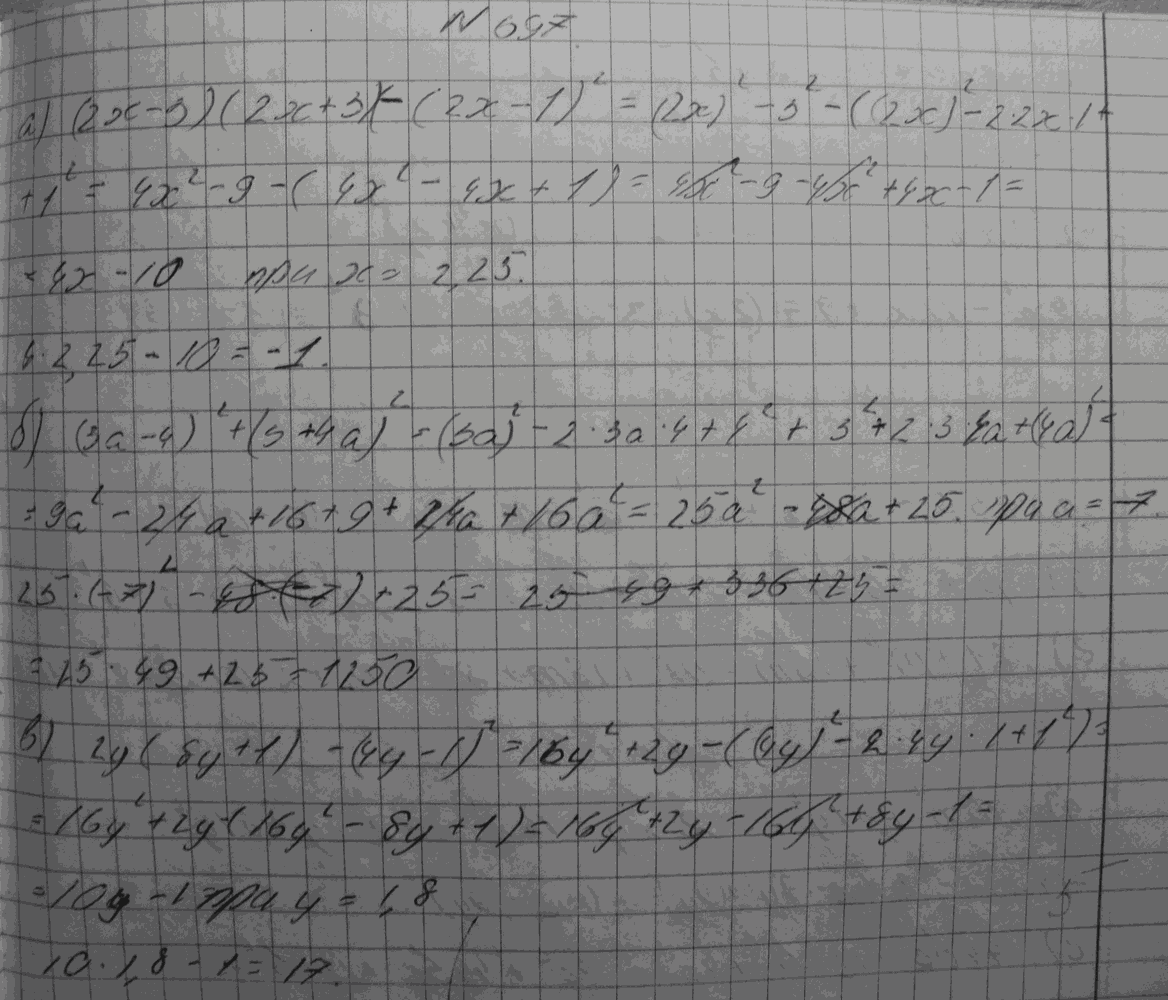 N 697.
а) (2x-3)(2x+3)-(2x-1)² = (2x)²-3²-((2x)²-2·2x·1+
+1² = 4x²-9-(4x²-4x+1) = 4x²-9-4x²+4x-1=
=4x-10 при x= 2,25.
4·2,25-10=-1.
б) (3a-4)²+(3+4a)²=(3a)²-2·3a·4+4²+3²+2·3·4a+(4a)²=
=9a²-24a+16+9+24a+16a²=25a²-48a+25. при a=-7.
25·(-7)²-48·(-7)+25= 25·49+336+25=
=25·49+25=1250
в) 2y(8y+1)-(4y-1)²=16y²+2y-((4y)²-2·4y·1+1²)=
=16y²+2y-(16y²-8y+1)=16y²+2y-16y²+8y-1=
=10y-1 при y=1,8
10·1,8-1=17.